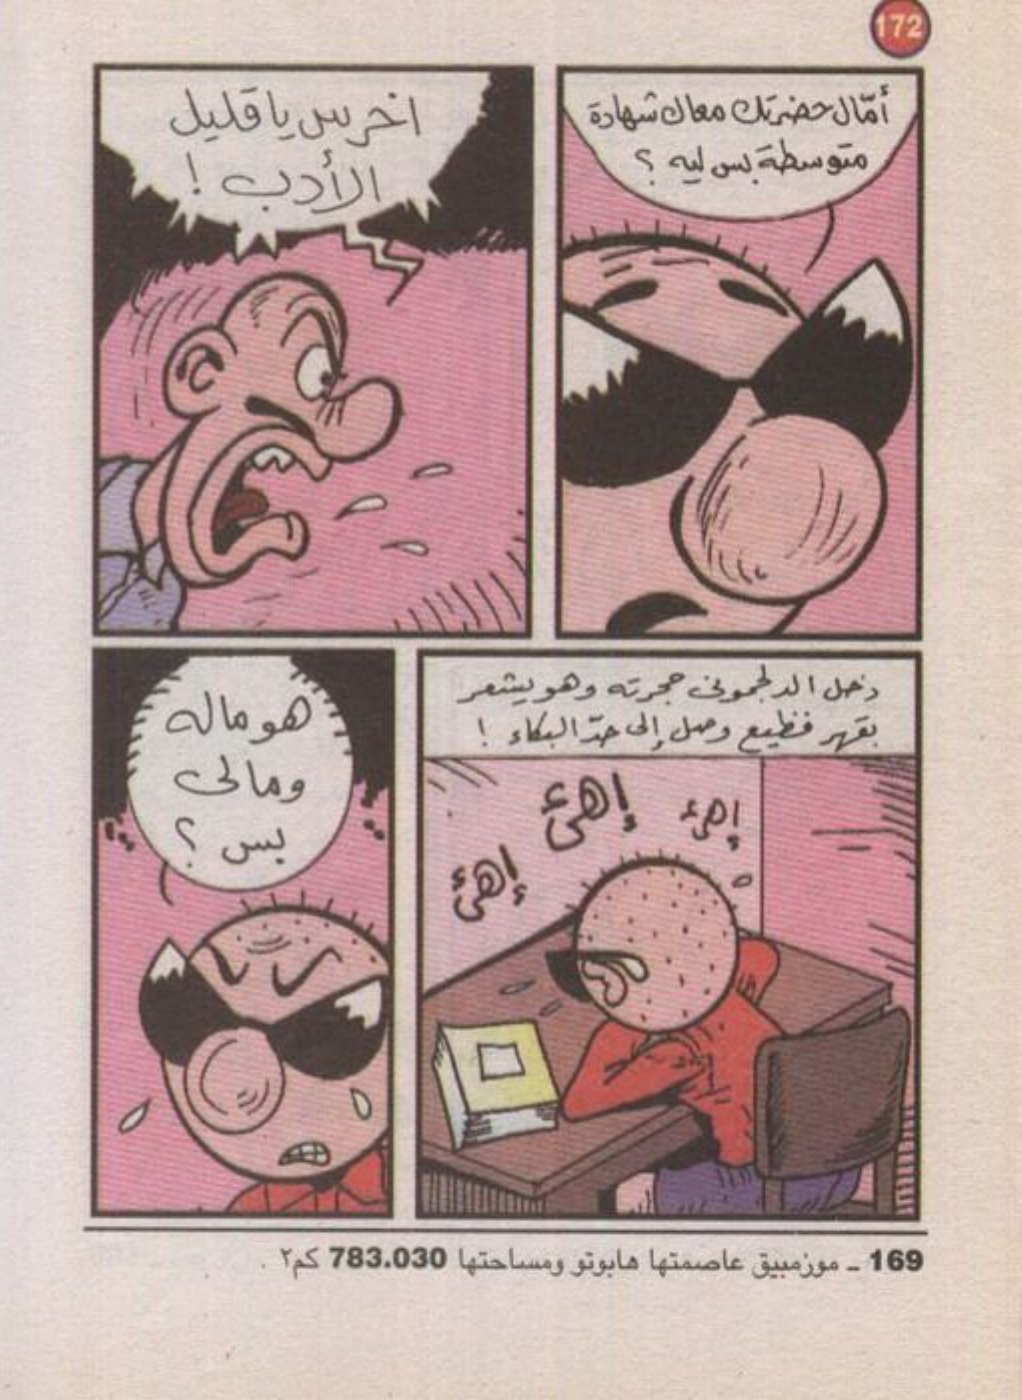 172
أمّال حضرتك معاك شهادة
متوسطة بس ليه ؟
اخرس يا قليل
الأدب !
دخل الدلجمونى حجرته وهو يشعر
بقهر فظيع وصل إلى حدّ البكاء !
إهئ
إهئ
إهئ
هو ماله
ومالى
بس ؟
169 ـ موزمبيق عاصمتها هابوتو ومساحتها 783.030 كم٢ .